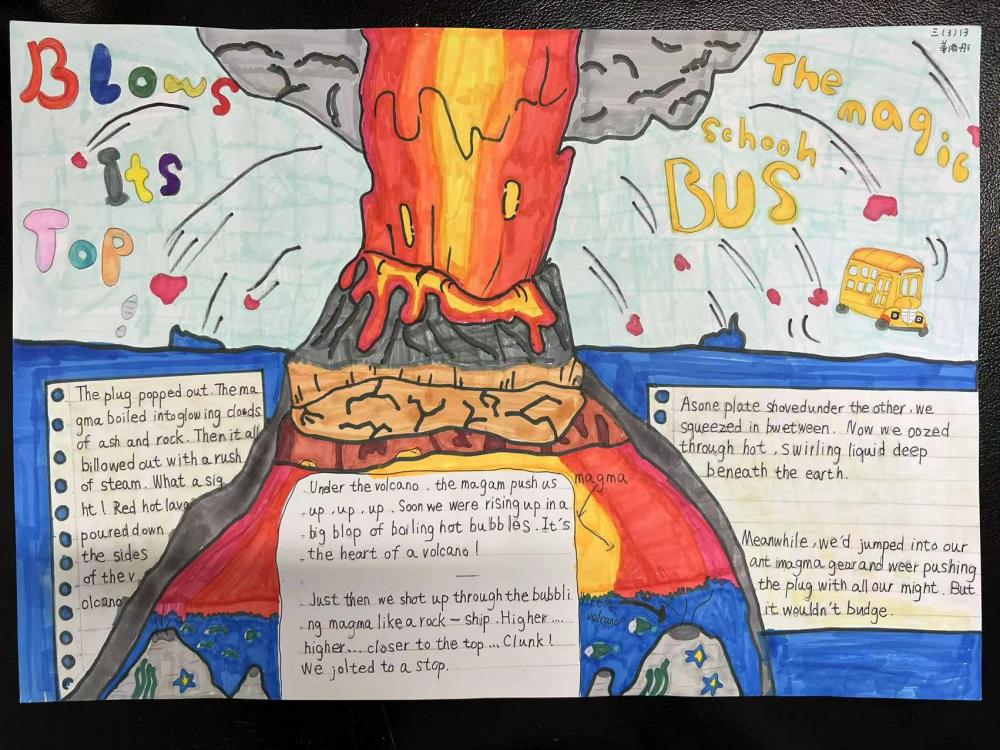 Blows
Its
Top
The
magic
schooh
BUS
三(3)13
The plug popped out. The ma
gma boiled into glowing clouds
of ash and rock. Then it all
billowed out with a rush
of steam. What a sig
ht! Red hot lava
poured down
the sides
of the v
olcano
Under the volcano, the magam push us
up, up, up. Soon we were rising up in a
big blop of boiling hot bubbles. It's
the heart of a volcano!
Just then we shot up through the bubbli
ng magma like a rock-ship. Higher....
higher... closer to the top... Clunk!
We jolted to a stop.
magma
"little
volcano"
Asone plate shovedunder the other, we
squeezed in bwetween. Now we oozed
through hot, swirling liquid deep
beneath the earth.
Meanwhile, we'd jumped into our
ant magma gear and weer pushing
the plug with all our might. But
it wouldn't budge.